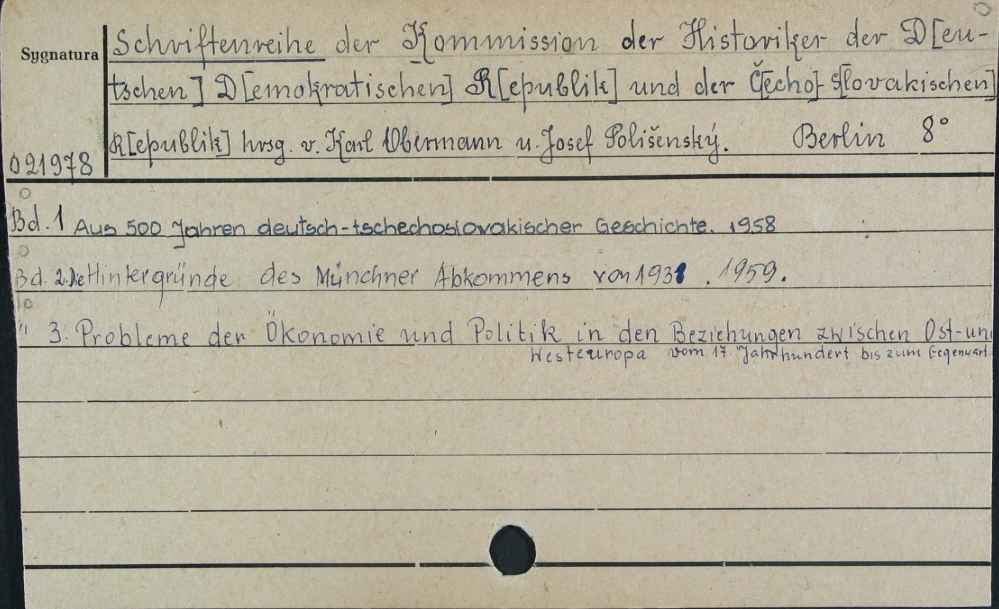 Sygnatura
Schriftenreihe der Kommission der Historiker der D[eu-
tschen] D[emokratischen] R[epublik] und der Č[echo]-s[lovakischen]
R[epublik] hrsg. v. Karl Obermann u. Josef Polišenský. Berlin 8°
021978
Bd. 1 Aus 500 Jahren deutsch-tschechoslovakischer Geschichte. 1958
Bd. 2. Die Hintergründe des Münchner Abkommens von 1938. 1959.
" 3. Probleme der Ökonomie und Politik in den Beziehungen zwischen Ost- un
Westeuropa vom 17. Jahrhundert bis zum Gegenwart.